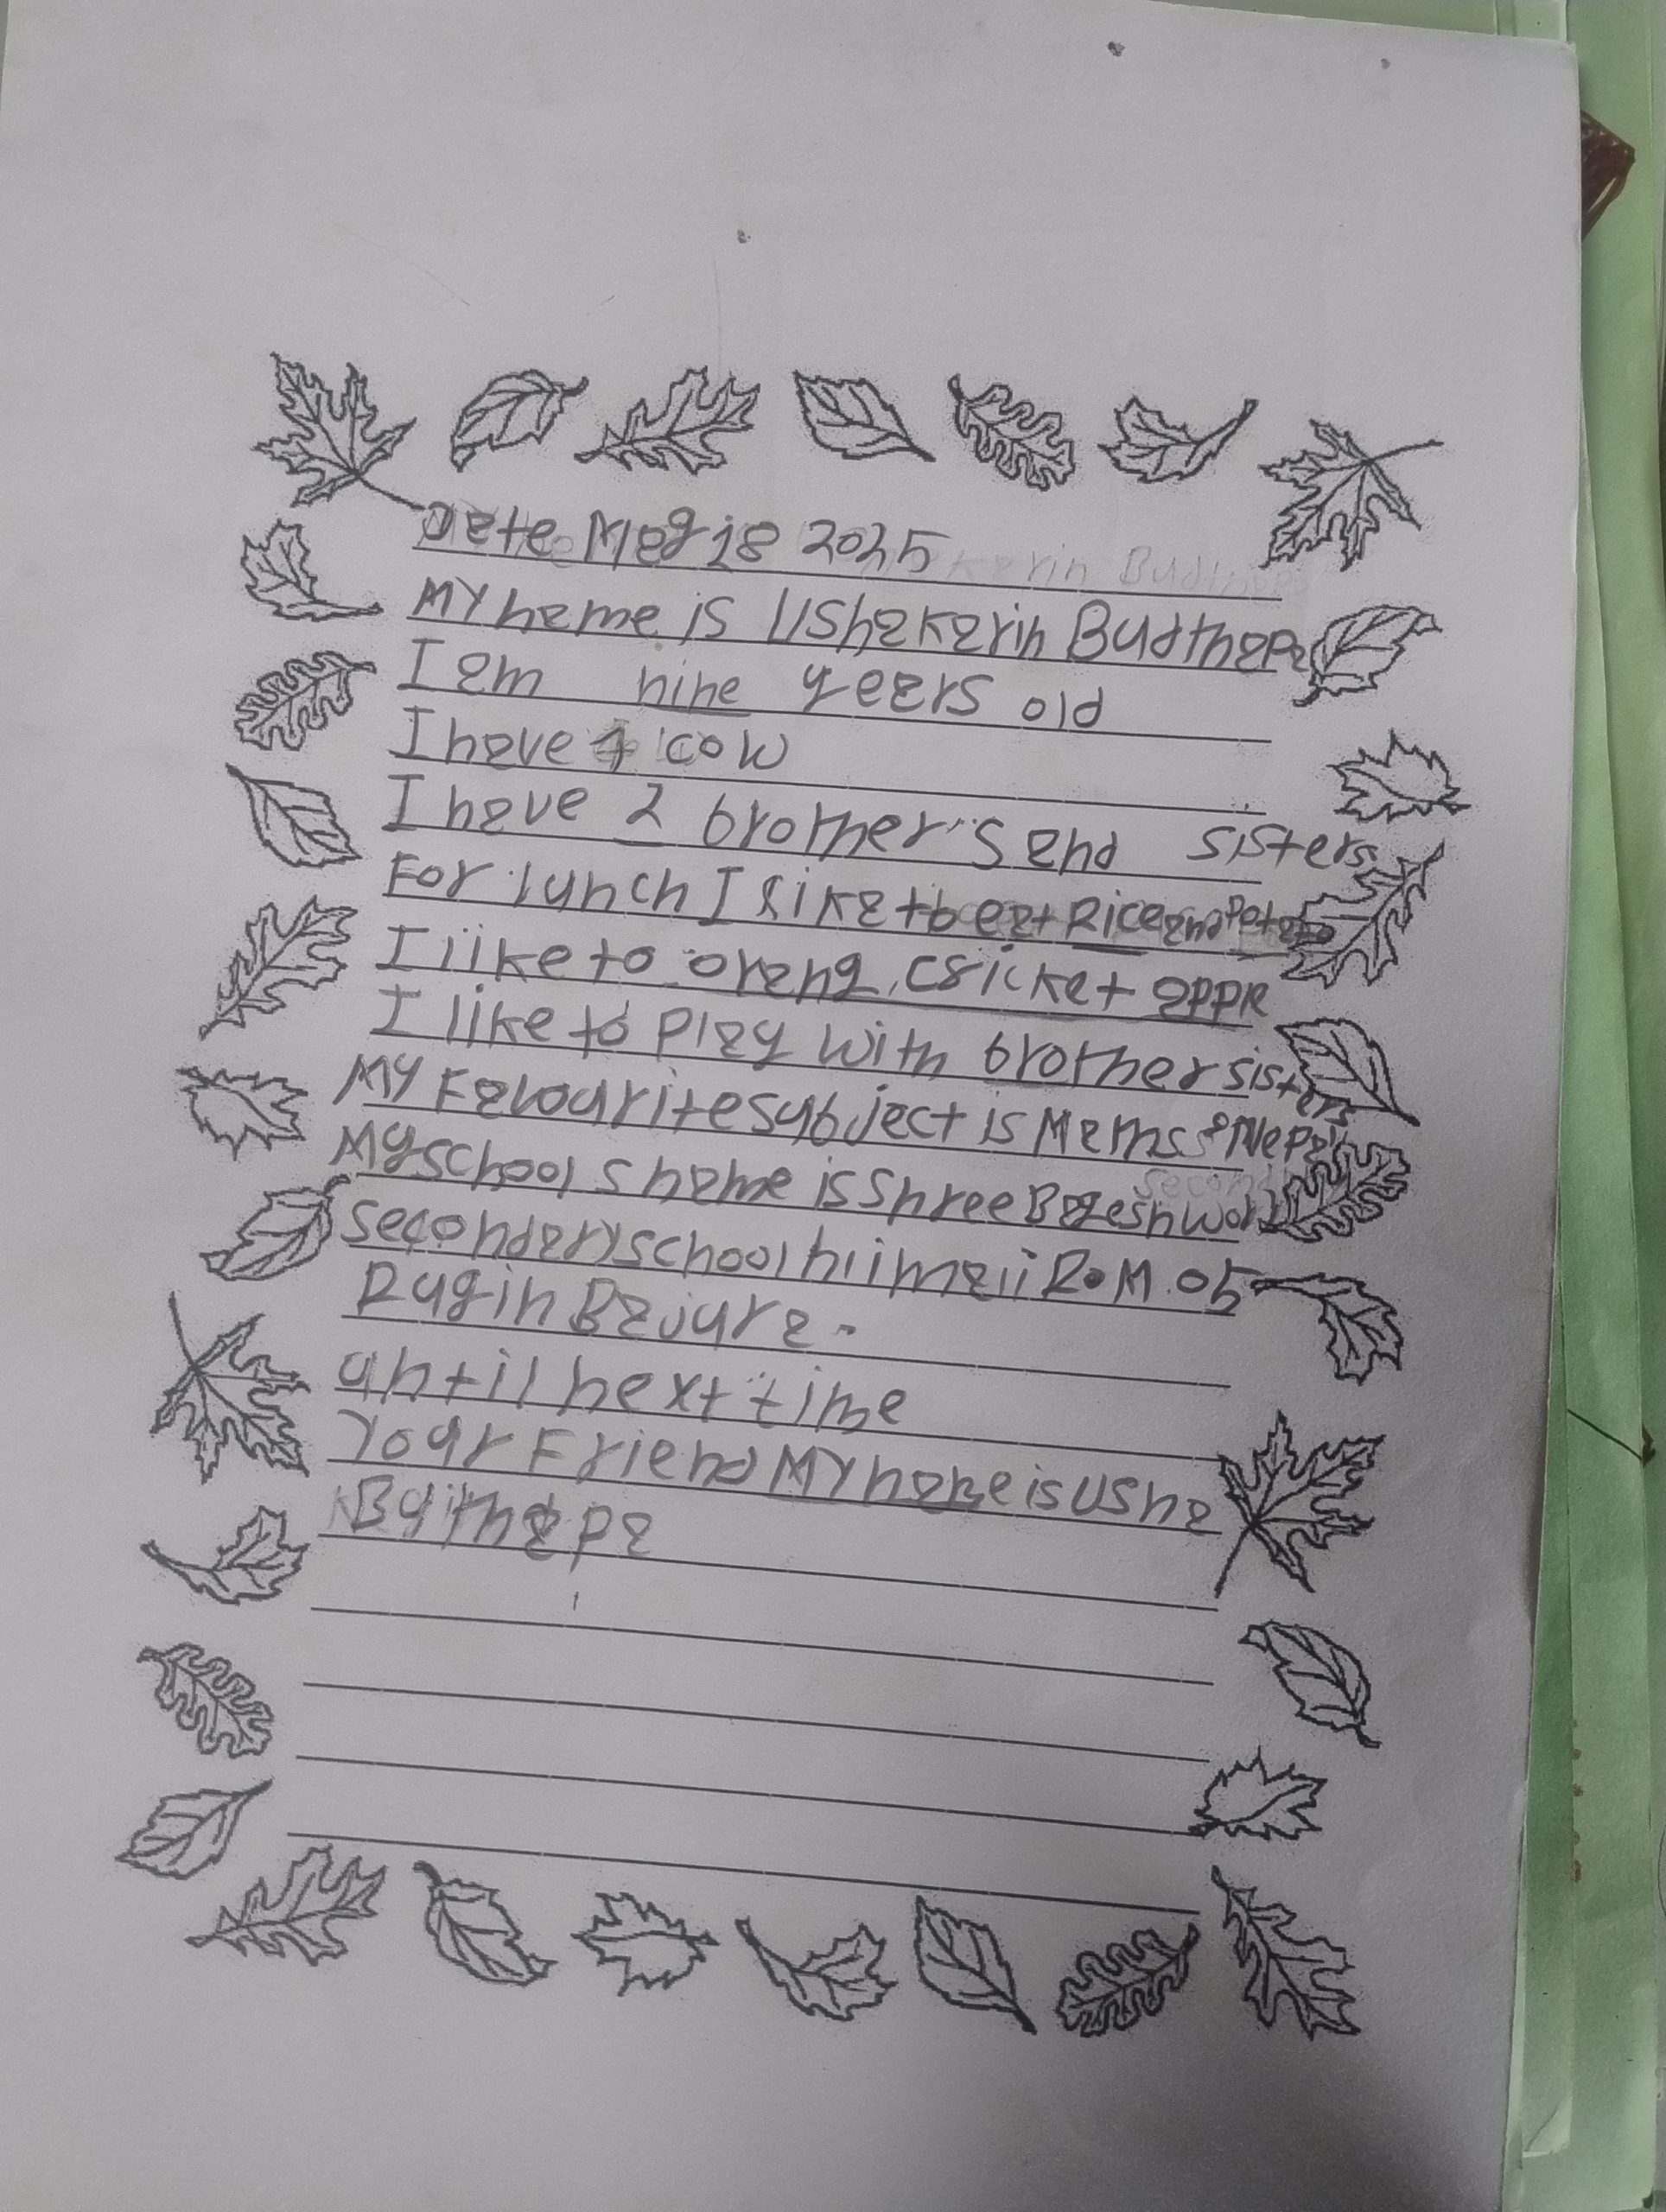 Date May 18 2025
My name is Ushakarin Budthapa
I am nine years old
I have 1 cow
I have 2 brother's and sisters
For lunch I like to eat Rice and Potato
I like to orang, cricket appR
I like to play with brother sisters
My Favourite subject is Maths & Nepali
My school s name is Shree Bageshwori
secondary school himali R.M. 05
Rugin Bajura.
until next time
Your Friend My name is Usha
Buthapa